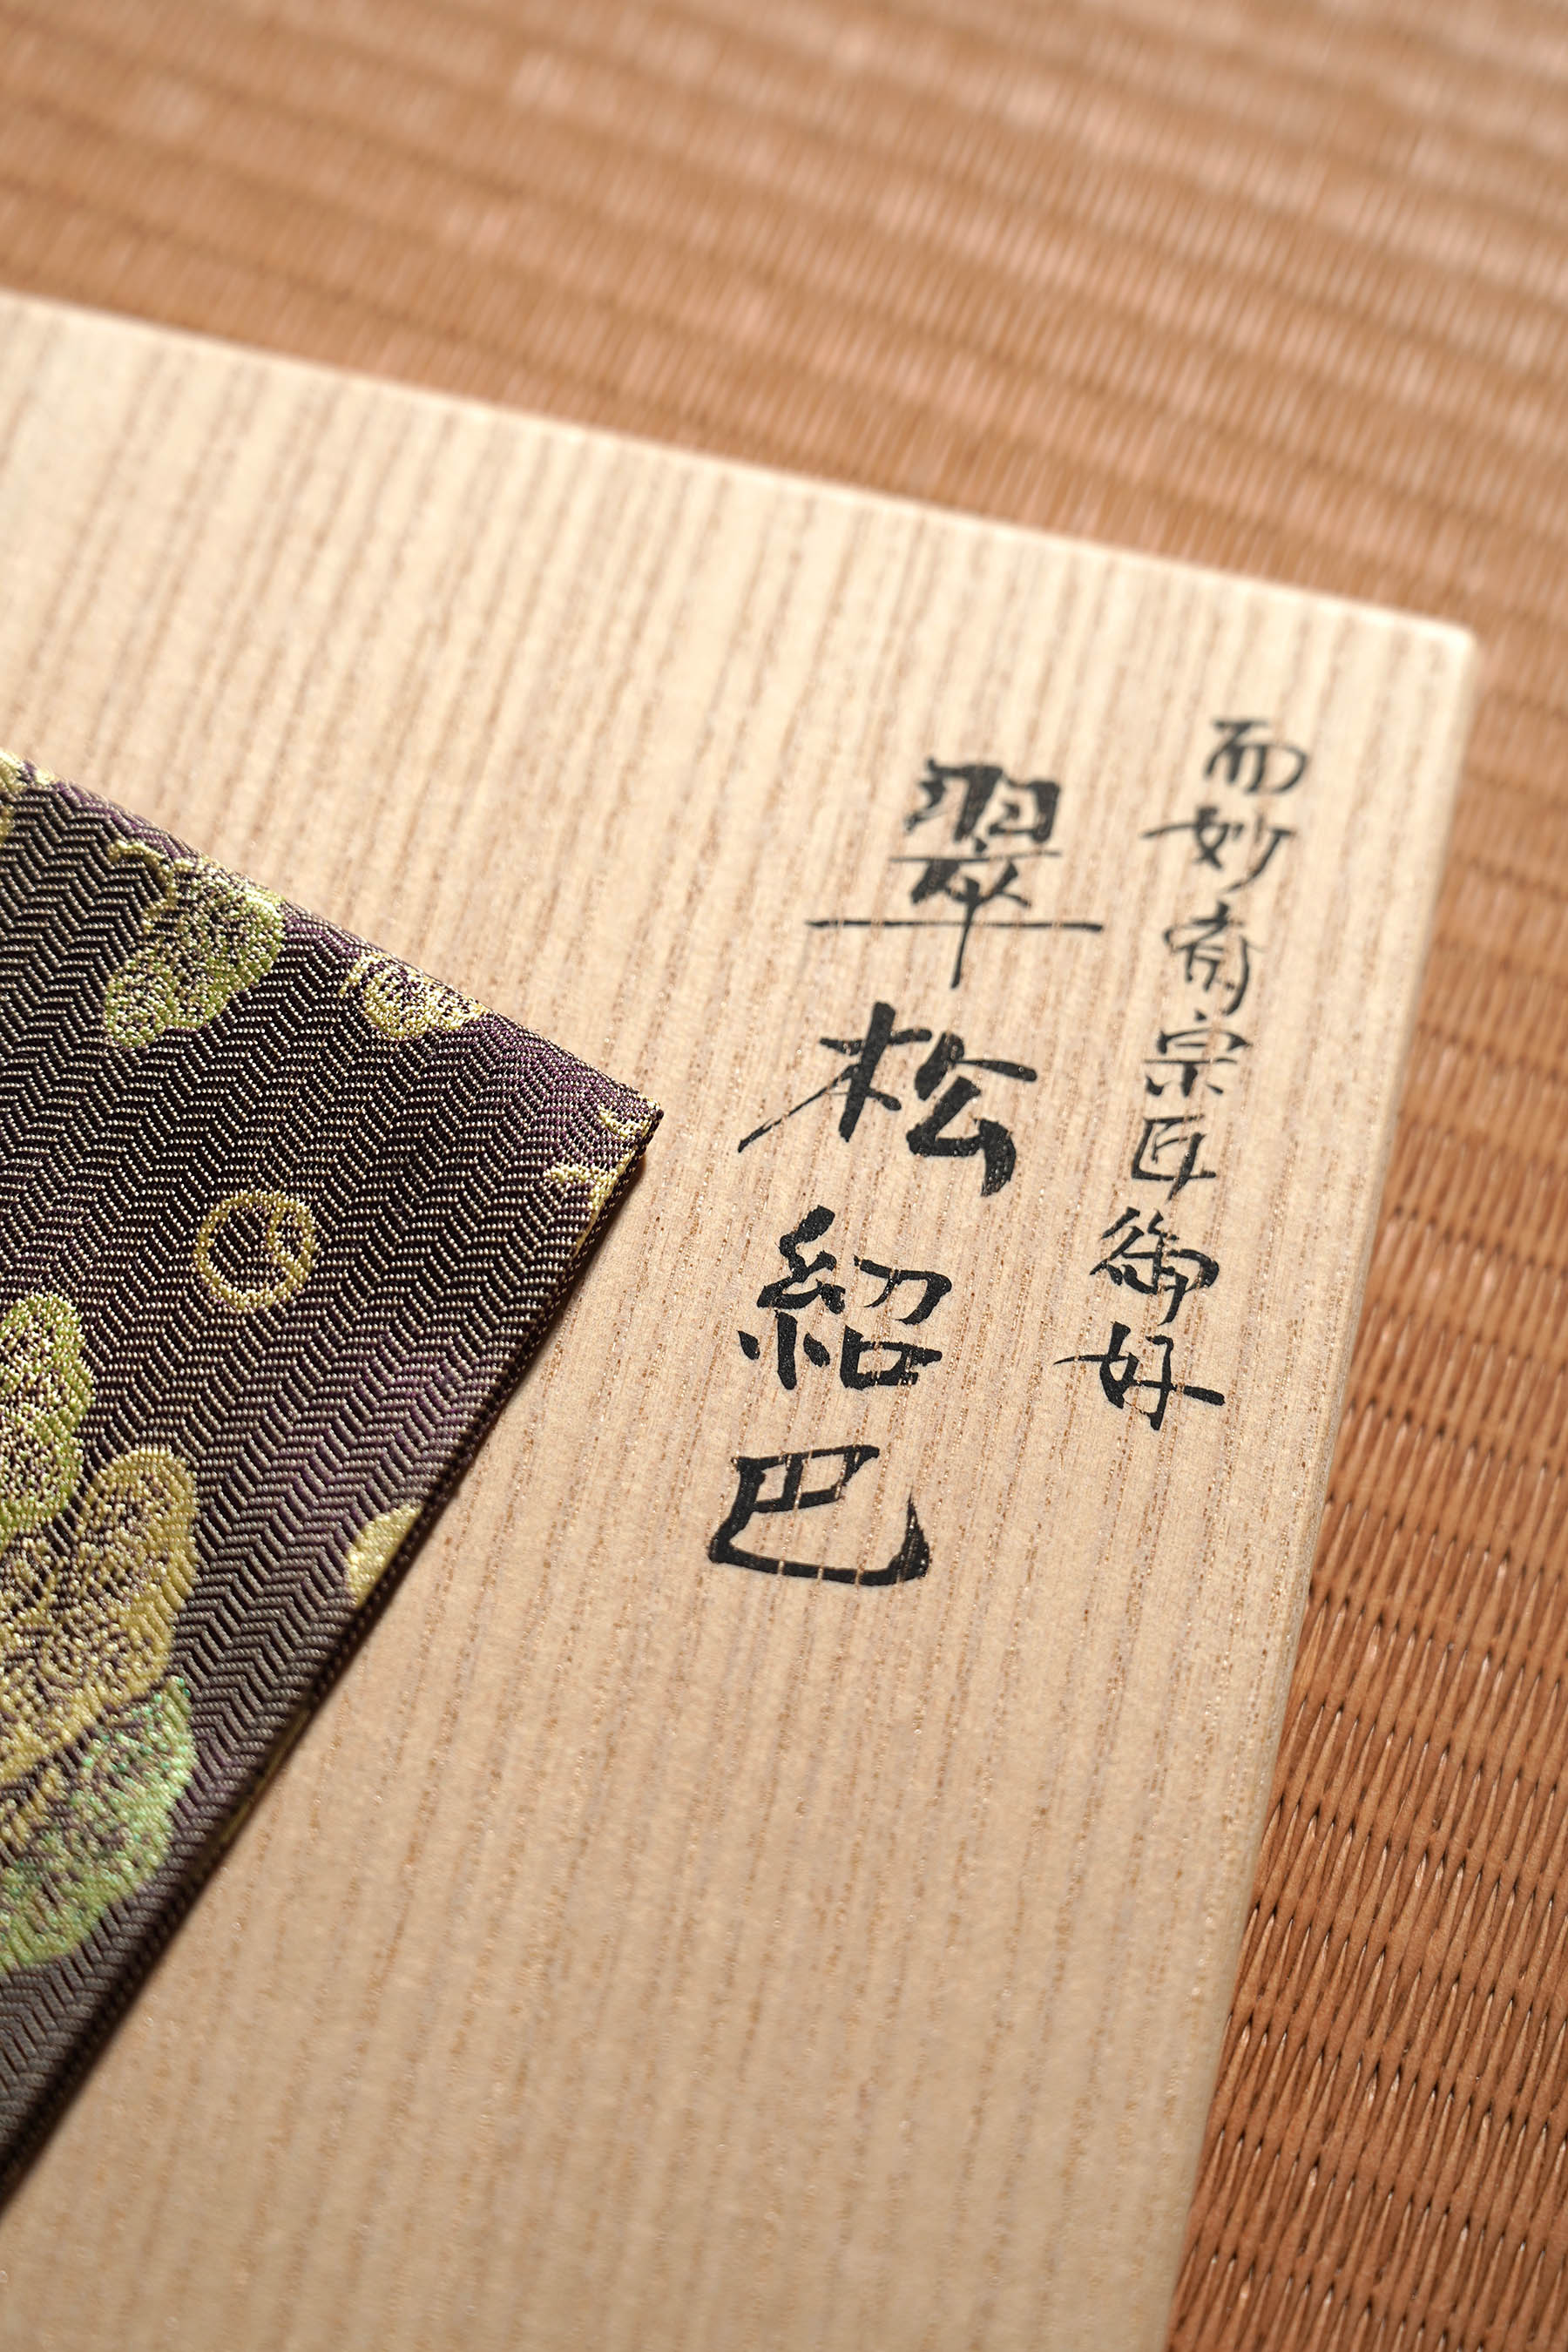 而妙斎宗匠御好
翠松紹巴